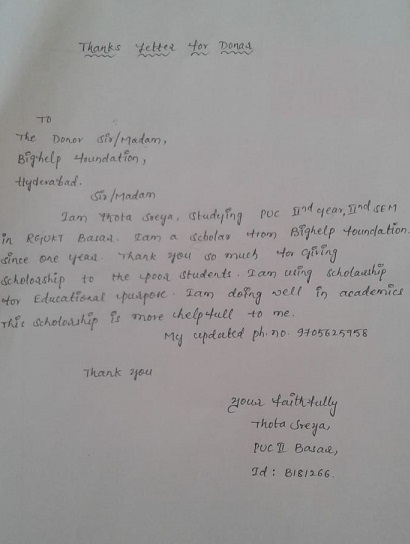 Thanks Letter for Donar
TO
The Donor Sir/Madam,
Bighelp foundation,
Hyderabad.
Sir/Madam
Iam Thota Sreya, studying PUC IInd year, IInd SEM
in RGUKT Basar. Iam a scholar from Bighelp foundation.
since one year. Thank you so much for giving
scholarship to the poor students. Iam using scholarship
for Educational purpose. Iam doing well in academics
This scholarship is more helpfull to me.
My updated ph.no. 9705625758
Thank you
your faithfully
Thota Sreya,
PUC II Basar,
Id : B181266.